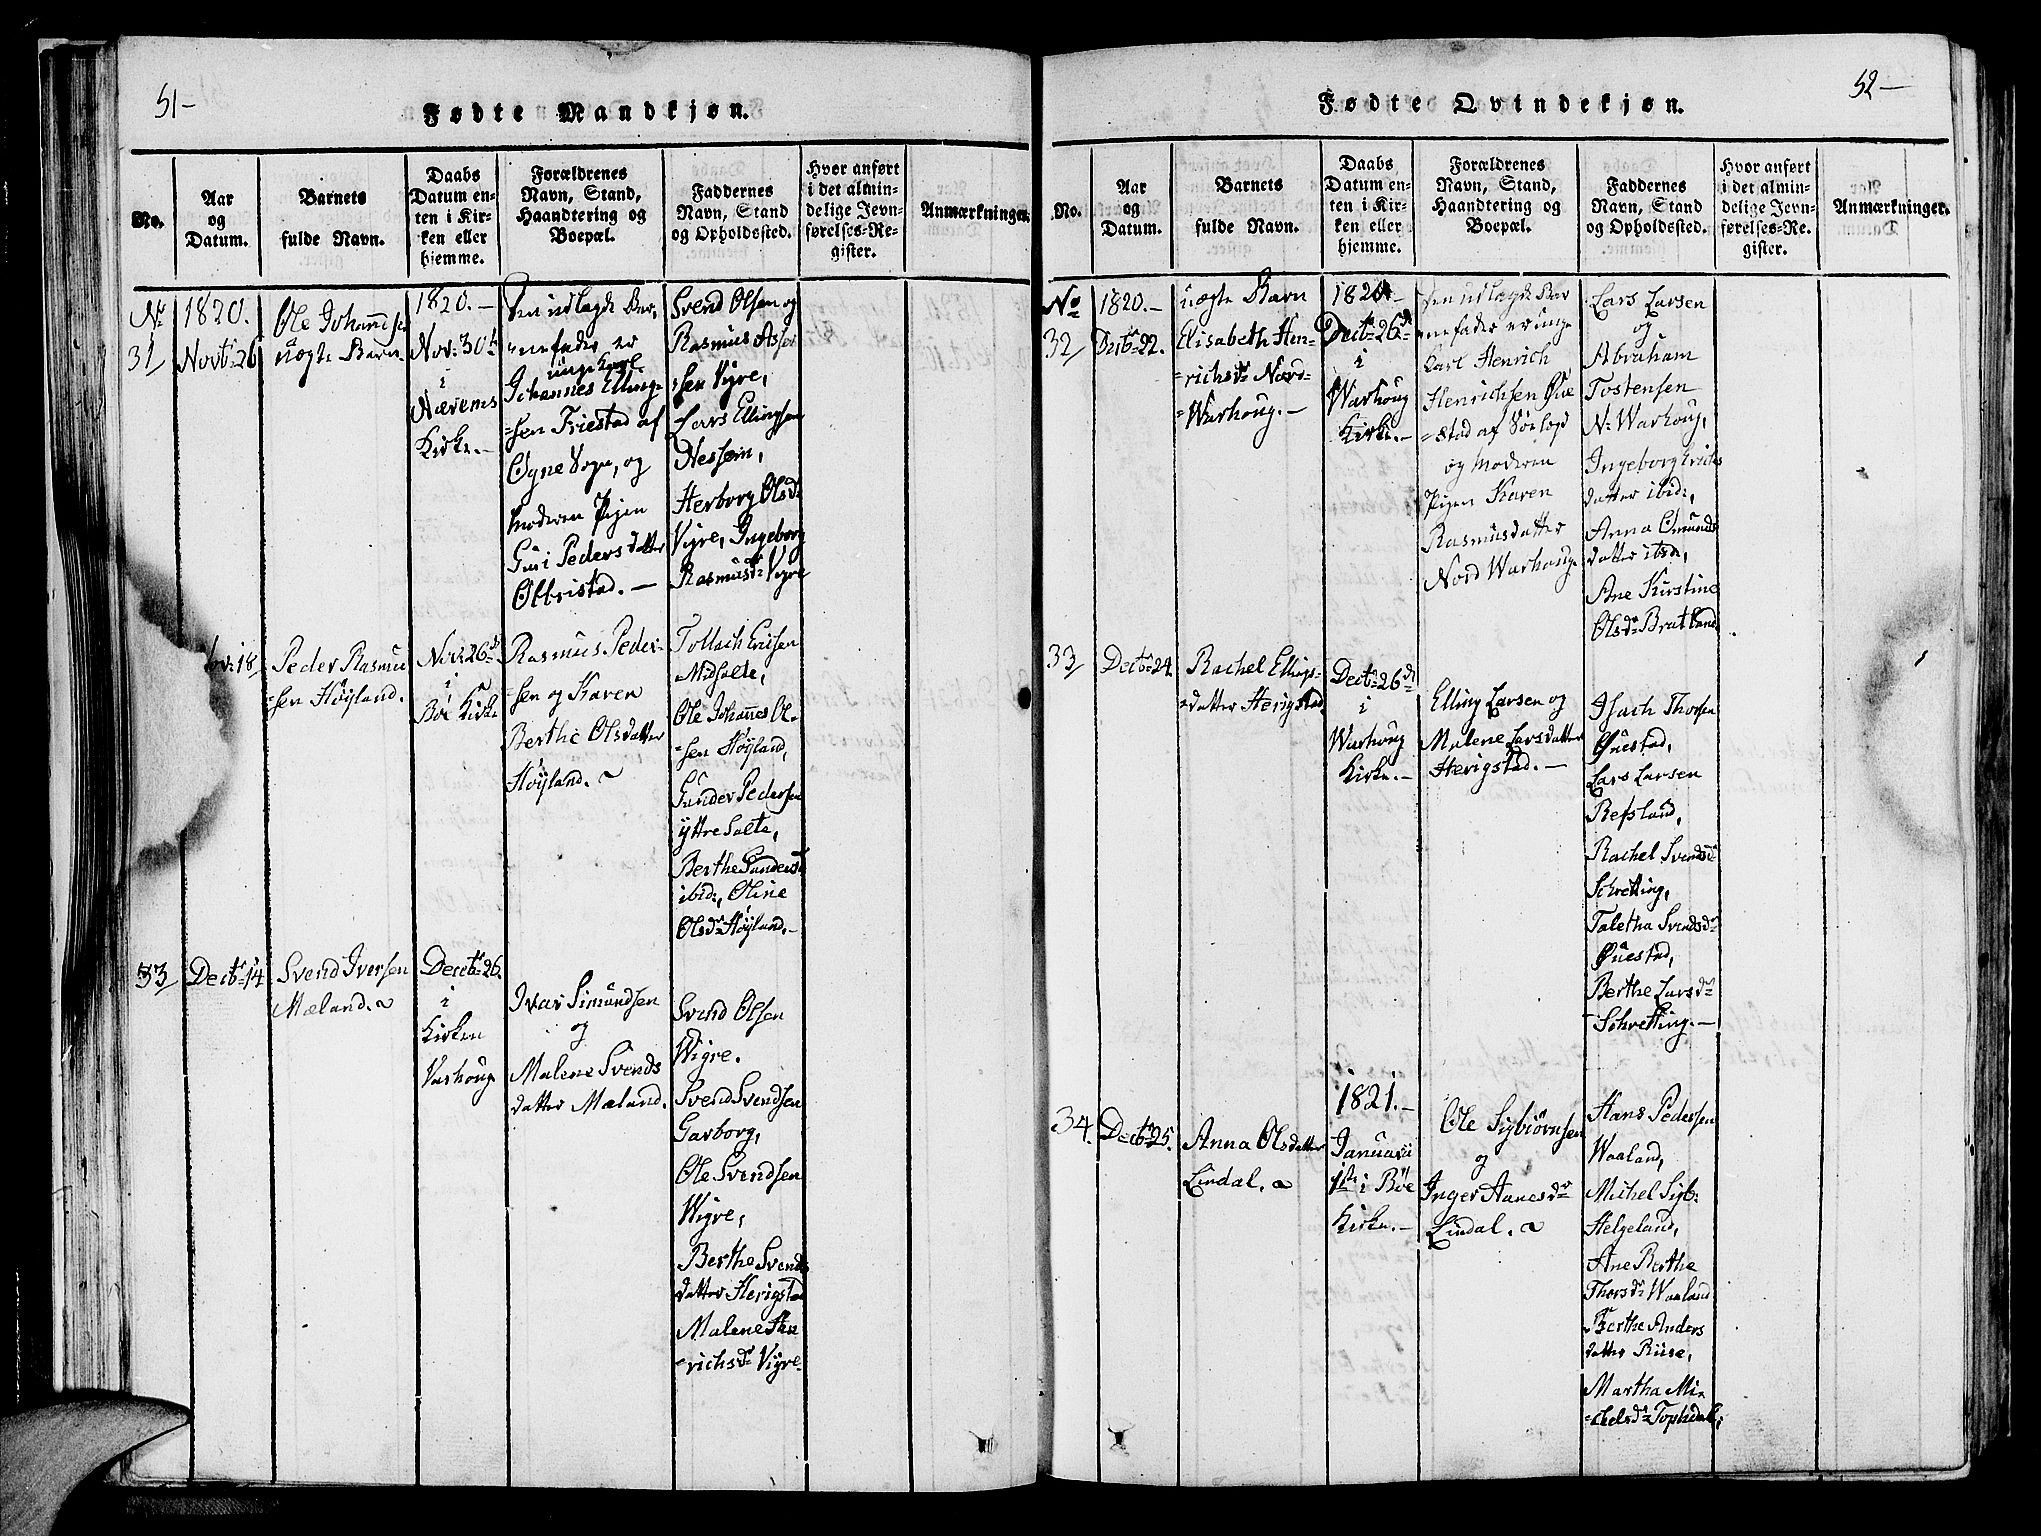 51-
Fødte Mandkjøn.
No.
Aar
og
Datum.
Barnets
fulde Navn.
Daabs
Datum en-
ten i Kir-
ken eller
hjemme.
Forældrenes
Navn, Stand,
Haandtering og
Boepæl.
Faddernes
Navn, Stand
og Opholdssted.
Hvor anført
i det almin-
delige Jevn-
førelses-Re-
gister.
Anmærkninger.
No
31
1820.
Novbr: 26
Ole Johannes
uægte Barn
1820.-
Nov: 30te
i
Nærems
Kirke.-
Den udlagde Bar-
nefader er
unge Karl
Johannes Elling-
=sen Friestad af
Ogne Sogn, og
Moderen Pigen
Guri Pedersdatter
Olbristad.-
Svend Olsen og
Rasmus Asser
=sen Vigre,
Lars Ellingsen
Nessem,
Herborg Olsd:
Vigre, Ingeborg
Rasmusdr: Vigre
br: 18
Peder Rasmu
=sen Höyland.
Nov: 26de
i
Böe Kirke
Rasmus Peder-
=sen og Karen
Berthe Olsdatter
Höyland.
Tollach Erichsen
Midsalte,
Ole Johannes Ol-
=sen Höyland,
Gunder Pedersen
yttre Salte,
Berthe Gundersd
ibid:, Oline
Olsdr: Höyland.-
33
Decbr: 14
Svend Iversen
Mæland.
Decbr: 26.
i
Kirken
Varhoug
Ivar Simundsen
og
Malene Svends
datter Mæland.
Svend Olsen
Wigre.
Svend Svendsen
Garborg,
Ole Svendsen
Wigre,
Berthe Svends
datter Herigstad
Malene Hen
=richsdr: Vigre-
52-
Fødte Qvindekjøn.
No.
Aar
og
Datum.
Barnets
fulde Navn.
Daabs
Datum en-
ten i Kir-
ken eller
hjemme.
Forældrenes
Navn, Stand,
Haandtering og
Boepæl.
Faddernes
Navn, Stand
og Opholdssted.
Hvor anført
i det almin-
delige Jevn-
førelses-Re-
gister.
Anmærkninger.
No
32
1820.-
Decbr: 22.
uægte Barn
Elisabeth Hen-
=richsdr: Nord-
=Warhoug.-
1820-
Decbr: 26de
i
Warhoug
Kirke.-
Den udlagde Bar
=nefader er unge
Carl Henrich
Henrichsen Que
=stad af Sogn
og Moderen
Pigen Karen
Rasmusdatter
Nord Warhoug.
Lars Larsen
og
Abraham
Tostensen
N: Warhoug,
Ingeborg Erichs
datter ibid:,
Anna Omunds
datter ibid,
Ane Kirstine
Olsdr: Bratland.
33
Decbr: 24
Rachel Ellings-
=datter Herigstad
Decbr: 26de
i
Warhoug
Kirke.-
Elling Larsen og
Malene Larsdatter
Herigstad.-
Isach Thorsen
Questad,
Lars Larsen
Refsland,
Rachel Svendsdr
Schretting,
Taletha Svendsdr
Questad,
Berthe Larsdr
Schretting.-
34.
Decbr: 25.
Anna Olsdatter
Lindal.
1821.-
Januarii
1ste i Böe
Kirke.-
Ole Sigbiörnsen
og
Inger Aanesdr
Lindal.
Hans Pedersen
Waaland,
Michel Sigb:
Helgeland,
Ane Berthe
Thorsdr: Waaland
Berthe Anders
datter Riise,
Martha Mi
=chelsdr: Tophdal.